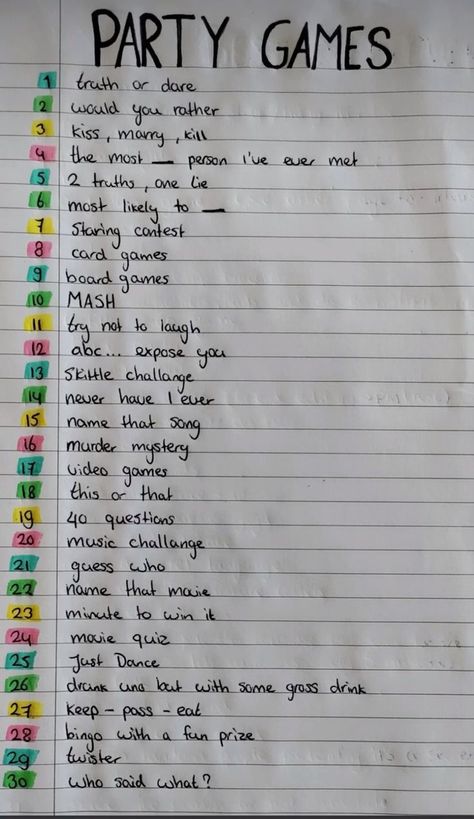 PARTY GAMES
1 truth or dare
2 would you rather
3 kiss, marry, kill
4 the most __ person i've ever met
5 2 truths, one lie
6 most likely to __
7 staring contest
8 card games
9 board games
10 MASH
11 try not to laugh
12 abc... expose you
13 skittle challange
14 never have I ever
15 name that song
16 murder mystery
17 video games
18 this or that
19 40 questions
20 music challange
21 guess who
22 name that movie
23 minute to win it
24 movie quiz
25 Just Dance
26 drunk uno but with some gross drink
27 keep - pass - eat
28 bingo with a fun prize
29 twister
30 who said what?